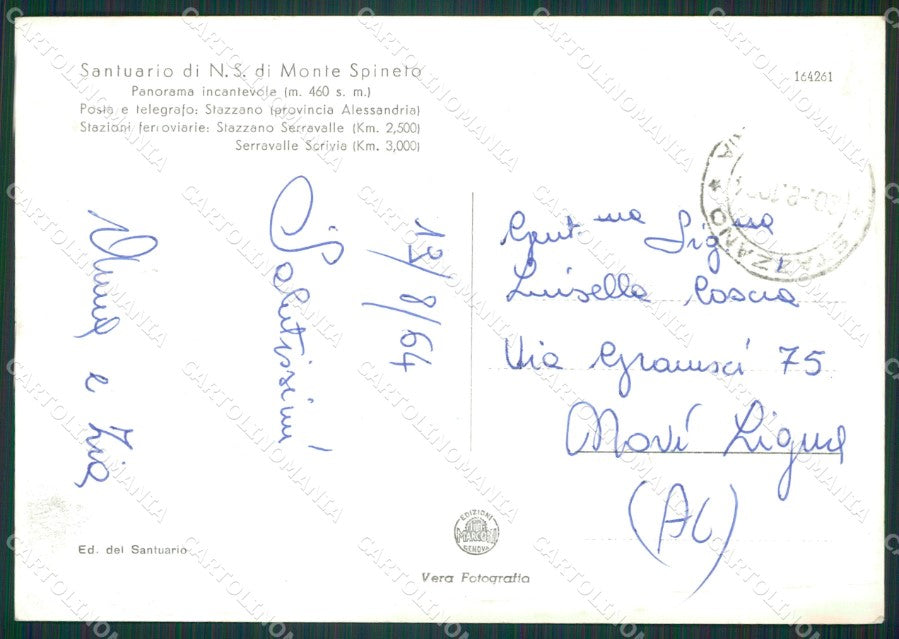 Santuario di N. S. di Monte Spineto
Panorama incantevole (m. 460 s. m.)
Posta e telegrafo: Stazzano (provincia Alessandria)
Stazioni ferroviarie: Stazzano Serravalle (Km. 2,500)
Serravalle Scrivia (Km. 3,000)
164261
STAZZANO
13/8/64
Salutissimi
e Zia
Gent.ma Sig.na
Luisella Coscia
Via Gramsci 75
Novi Ligure
(AL)
Ed. del Santuario
EDIZIONI
MARCONI
GENOVA
Vera Fotografia
CARTOLINOMANIA